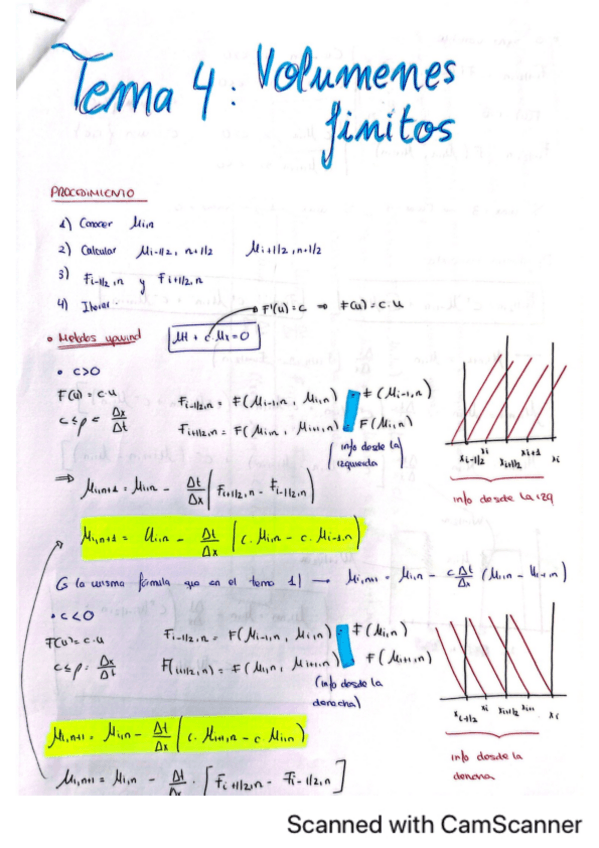 Tema 4: Volumenes
finitos
PROCEDIMIENTO
1) Conocer Mi,n
2) Calcular Mi-1/2, n+1/2 Mi+1/2, n+1/2
3) Fi-1/2,n y Fi+1/2,n
4) Iterar
F'(u)=c ⇒ F(u)=c.u
• Metodos upwind Mt + c.Mx=0
• c>0
F(u)=c.u
Fi-1/2,n = F(Mi-1,n, Mi,n) = F(Mi-1,n)
c≤ρ = Δx/Δt
Fi+1/2,n = F(Mi,n, Mi+1,n) = F(Mi,n)
(info desde la izquierda
xi-1/2 xi xi+1/2 xi+1 xi
info desde la izq
⇒ Mi,n+1 = Mi,n - Δt/Δx (Fi+1/2,n - Fi-1/2,n)
Mi,n+1 = Ui,n - Δt/Δx (c.Mi,n - c.Mi-1,n)
G la misma fórmula que en el tema 1) → Mi,n+1 = Mi,n - cΔt/Δx (Mi,n - Mi-1,n)
• c<0
F(u)=c.u
Fi-1/2,n = F(Mi-1,n, Mi,n) = F(Mi,n)
c≤ρ = Δx/Δt
F(i+1/2,n) = F(Mi,n, Mi+1,n) = F(Mi+1,n)
(info desde la
derecha)
xi-1/2 xi xi+1/2 xi+1 xi
info desde la
derecha
Mi,n+1 = Mi,n - Δt/Δx (c.Mi+1,n - c.Mi,n)
Mi,n+1 = Mi,n - Δt/Δx . [Fi+1/2,n - Fi-1/2,n]
Scanned with CamScanner